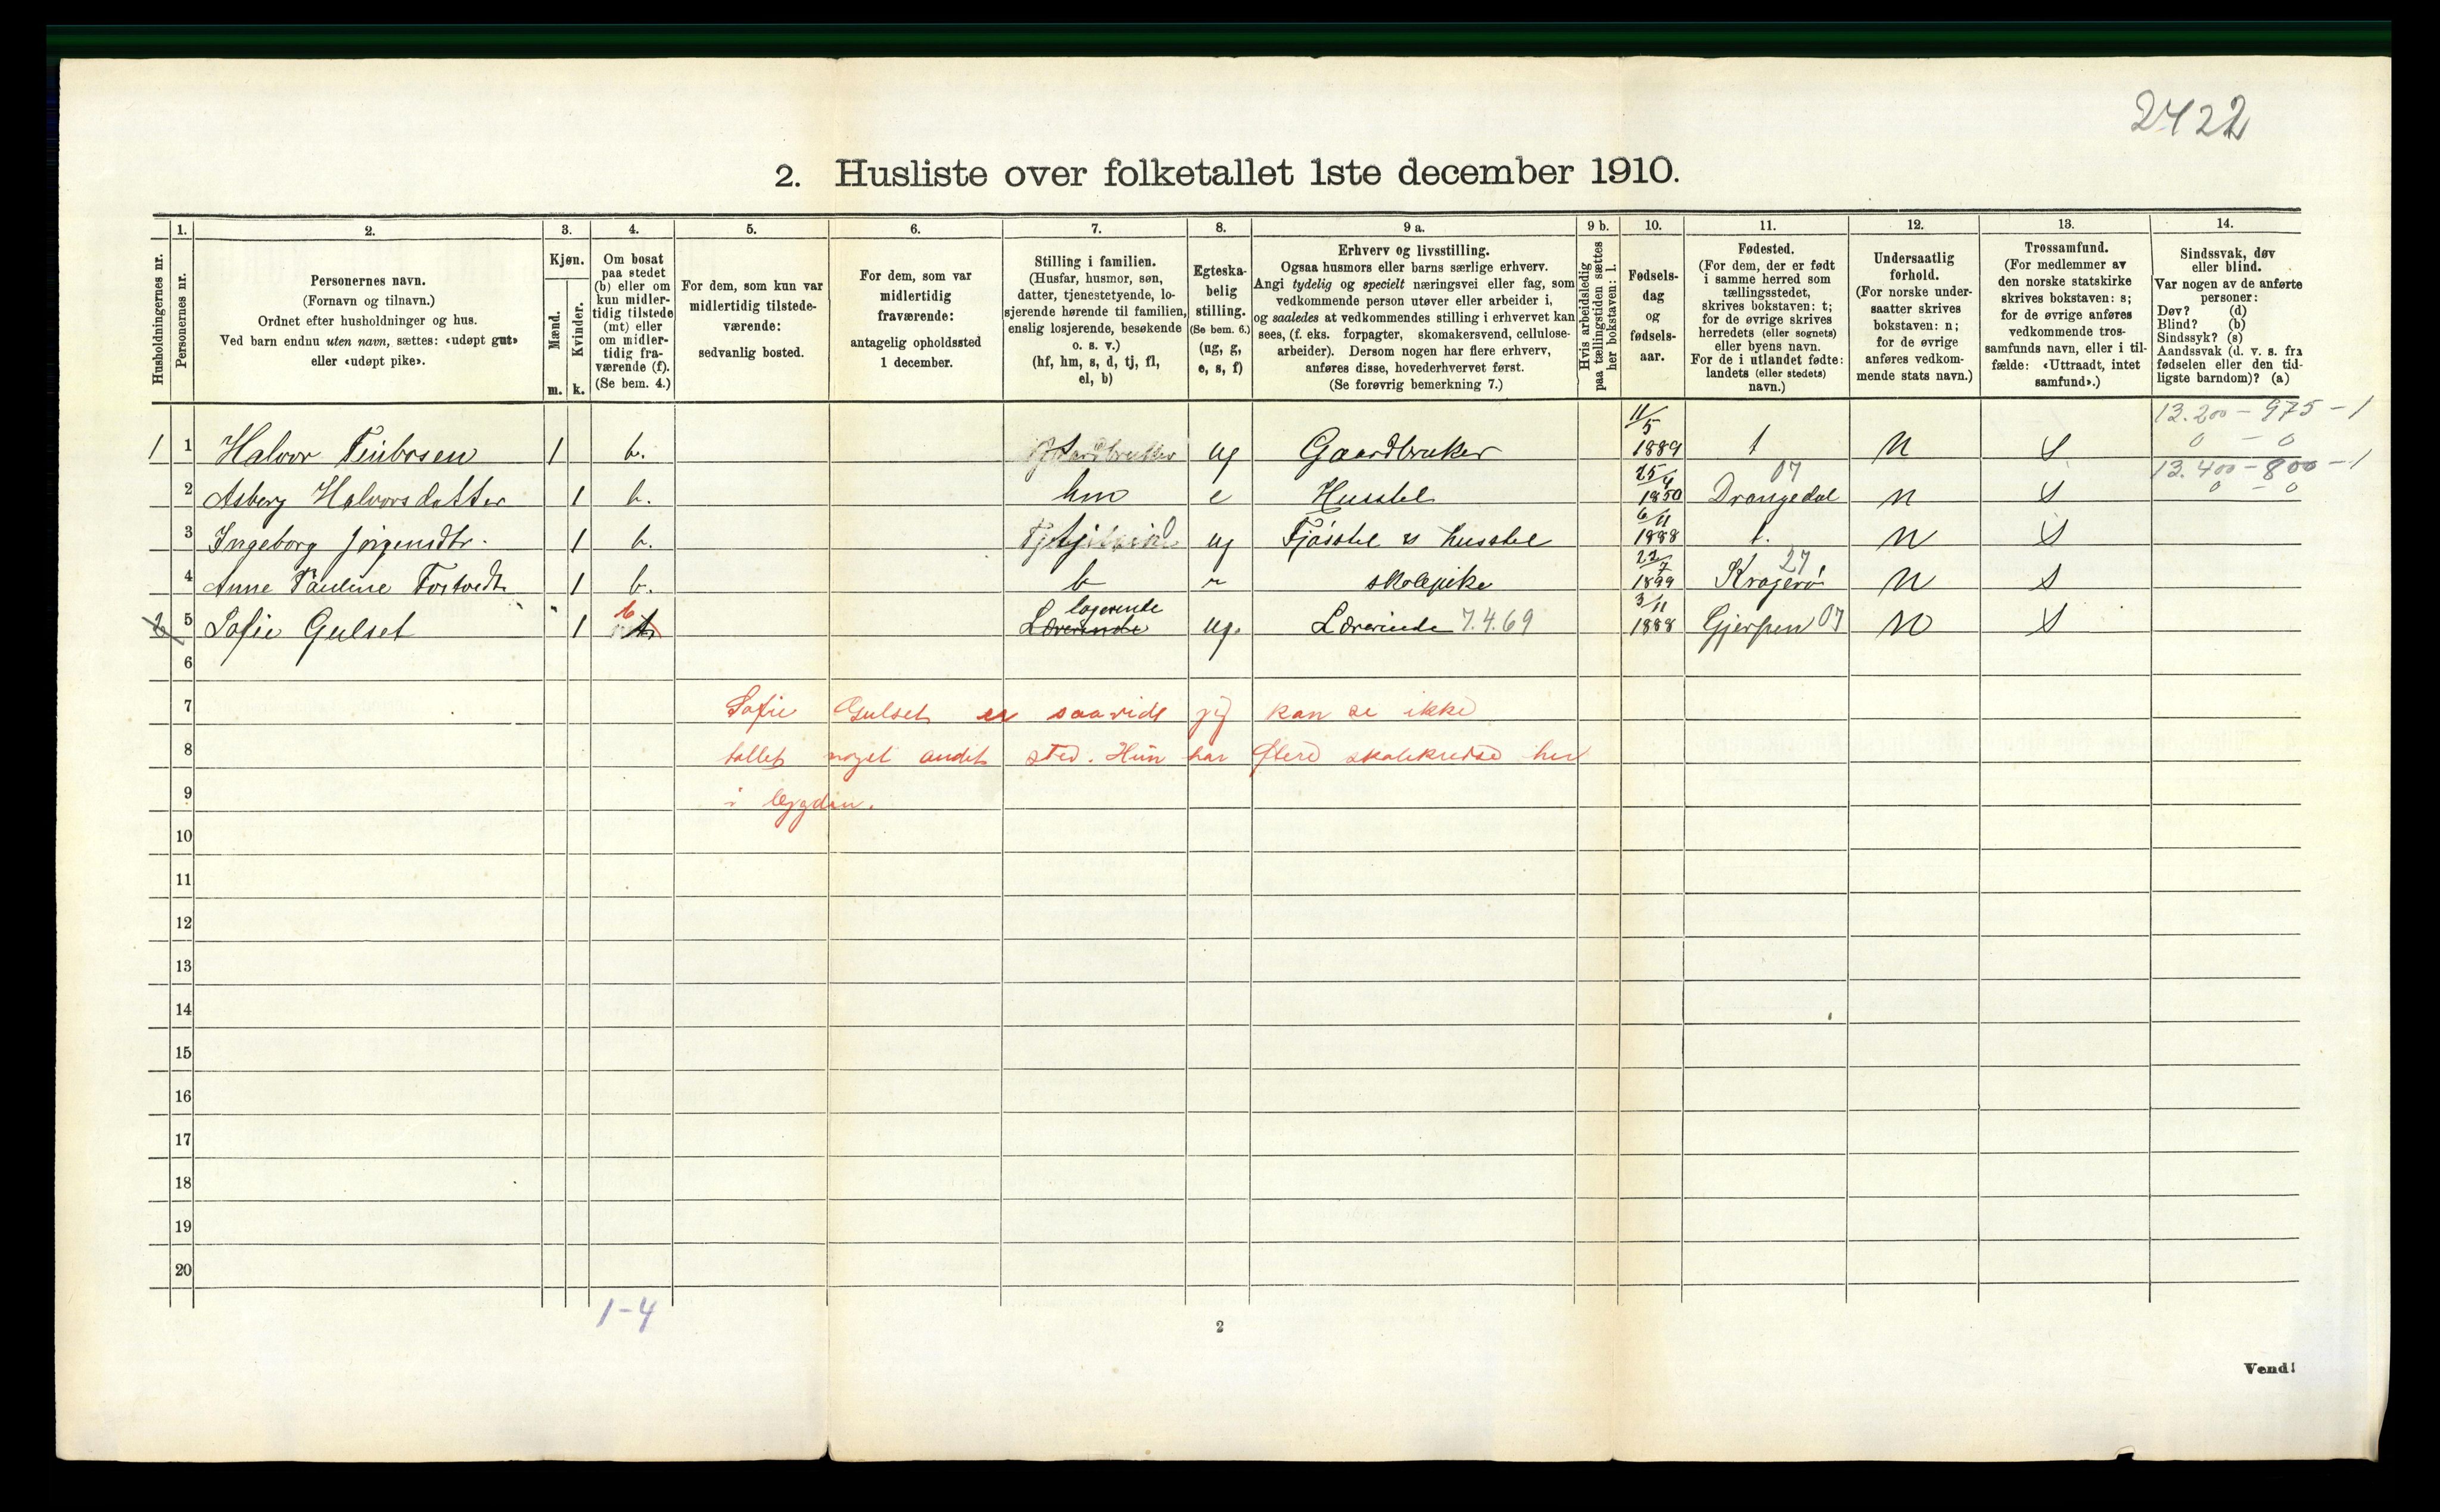 2422
2. Husliste over folketallet 1ste december 1910.
Husholdningernes nr.
1.
Personernes nr.
2.
Personernes navn.
(Fornavn og tilnavn.)
Ordnet efter husholdninger og hus.
Ved barn endnu uten navn, sættes: «udøpt gut»
eller «udøpt pike».
3.
Kjøn.
Mænd.
Kvinder.
m. k.
4.
Om bosat
paa stedet
(b) eller om
kun midler-
tidig tilstede
(mt) eller
om midler-
tidig fra-
værende (f).
(Se bem. 4.)
5.
For dem, som kun var
midlertidig tilstede-
værende:
sedvanlig bosted.
6.
For dem, som var
midlertidig
fraværende:
antagelig opholdssted
1 december.
7.
Stilling i familien.
(Husfar, husmor, søn,
datter, tjenestetyende, lo-
sjerende hørende til familien,
enslig losjerende, besøkende
o. s. v.)
(hf, hm, s, d, tj, fl,
el, b)
8.
Egteska-
belig
stilling.
(Se bem. 6.)
(ug, g,
e, s, f)
9 a.
Erhverv og livsstilling.
Ogsaa husmors eller barns særlige erhverv.
Angi tydelig og specielt næringsvei eller fag, som
vedkommende person utøver eller arbeider i,
og saaledes at vedkommendes stilling i erhvervet kan
sees, (f. eks. forpagter, skomakersvend, cellulose-
arbeider). Dersom nogen har flere erhverv,
anføres disse, hovederhvervet først.
(Se forøvrig bemerkning 7.)
9 b.
Hvis arbeidsledig
paa tællingstiden sættes
her bokstaven: l.
10.
Fødsels-
dag
og
fødsels-
aar.
11.
Fødested.
(For dem, der er født
i samme herred som
tællingsstedet,
skrives bokstaven: t;
for de øvrige skrives
herredets (eller sognets)
eller byens navn.
For de i utlandet fødte:
landets (eller stedets)
navn.)
12.
Undersaatlig
forhold.
(For norske under-
saatter skrives
bokstaven: n;
for de øvrige
anføres vedkom-
mende stats navn.)
13.
Trossamfund.
(For medlemmer av
den norske statskirke
skrives bokstaven: s;
for de øvrige anføres
vedkommende tros-
samfunds navn, eller i til-
fælde: «Uttraadt, intet
samfund».)
14.
Sindssvak, døv
eller blind.
Var nogen av de anførte
personer:
Døv? (d)
Blind? (b)
Sindssyk? (s)
Aandssvak (d. v. s. fra
fødselen eller den tid-
ligste barndom)? (a)
13.200 - 975 - 1
0 - 0
1 1 Halvor 1 b. ug Gaardbruker 11/5 1889 t n s
13.400 - 800 - 1
0 - 0
2 Asberg Halvorsdatter 1 b. hm e Husstel 25/4 1850 Drangedal 07 n s
3 Ingeborg Jørgensdtr. 1 b. tj ug Fjøsstel & husstel 6/11 1888 t. n s
4 Anne Pauline Tostvedt 1 b. b skolepike 22/7 1899 Kragerø 27 n s
2 5 Sofie Gulset 1 b Lærerinde logerende ug. Lærerinde 7.4.69 3/11 1888 Gjerpen 07 n s
6
7 Sofie Gulset er saavidt jeg kan se ikke
8 tallet noget andet sted. Hun har flere skolekredse her
9 i bygden.
10
11
12
13
14
15
16
17
18
19
20
1-4
2
Vend!